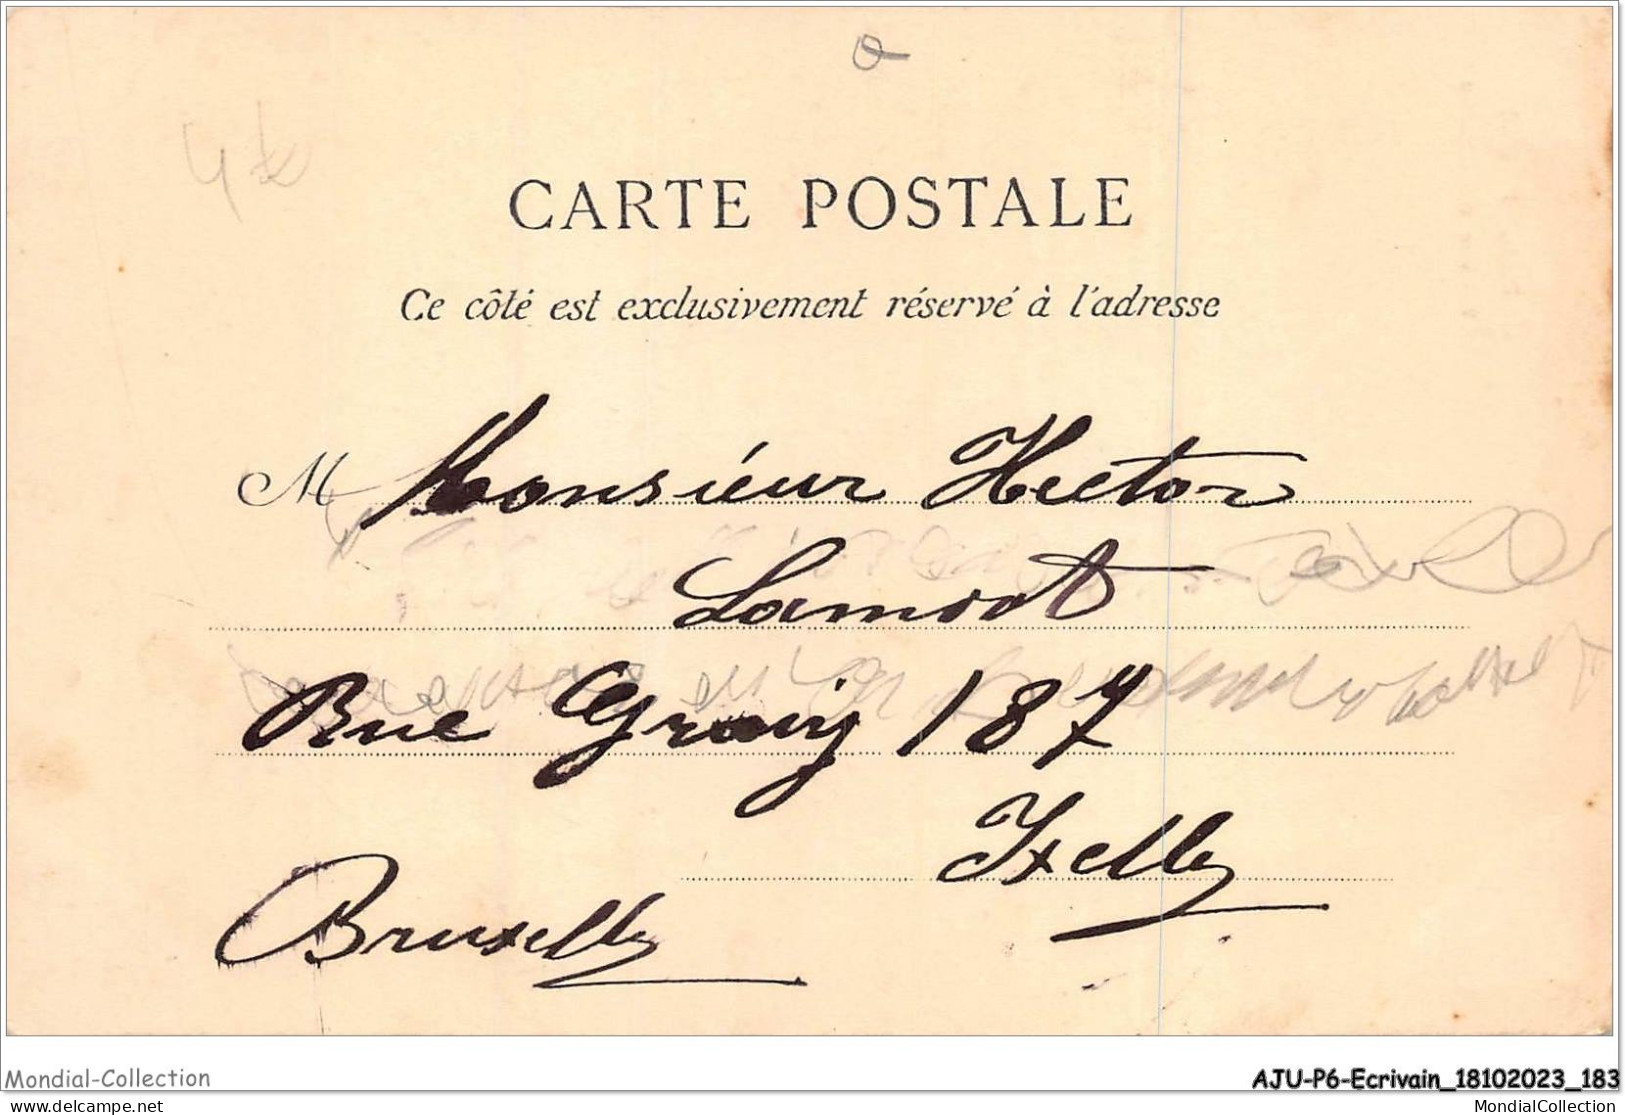 CARTE POSTALE
Ce côté est exclusivement réservé à l'adresse
M Monsieur Hector
Lamoot
Rue Gray 187
Ixelles
Bruxelles
Mondial-Collection
AJU-P6-Ecrivain_18102023_183
www.delcampe.net
MondialCollection